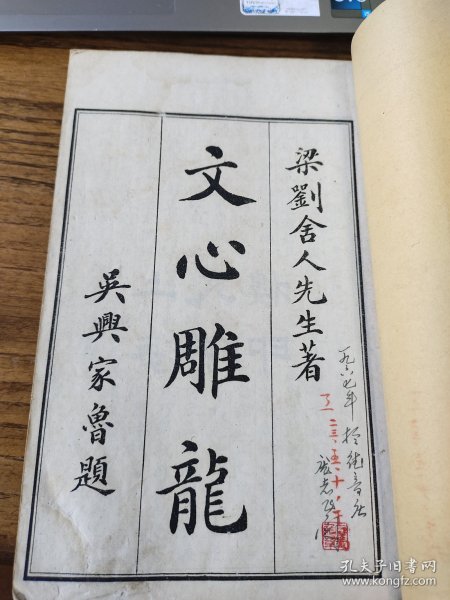 梁劉舍人先生著
文心雕龍
吳興家魯題
孔夫子旧书网
www.kongfz.com